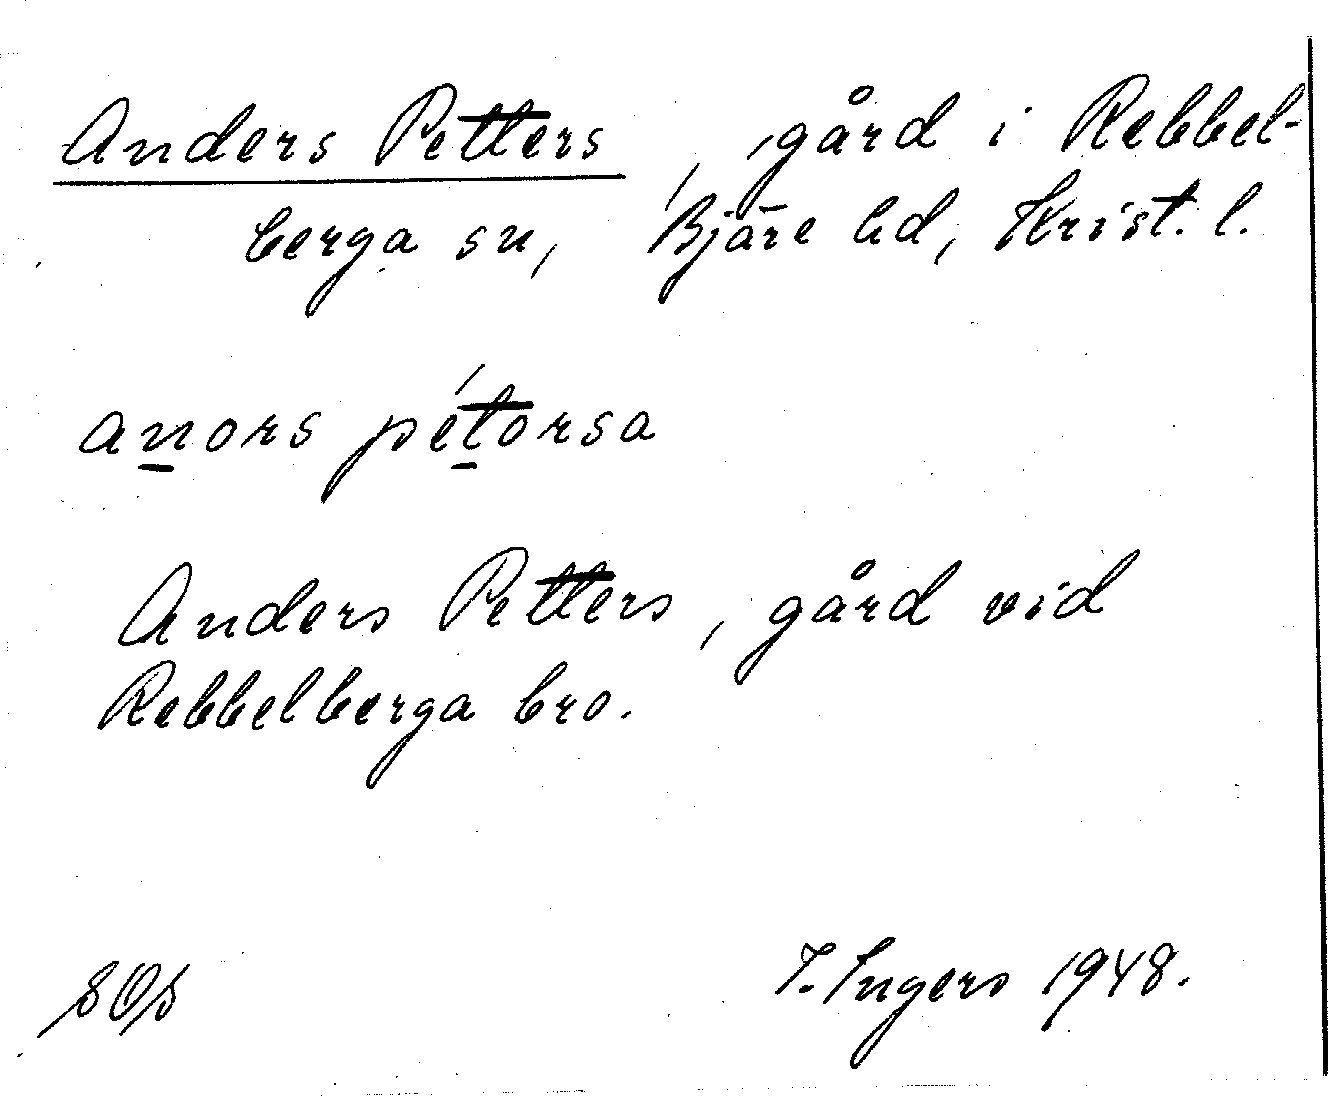 Anders Petters, gård i Rebbel-
berga sn, Bjäre hd, Krist. l.
anors pétorsa
Anders Petters, gård vid
Rebbelberga bro.
I. Ingers 1948.